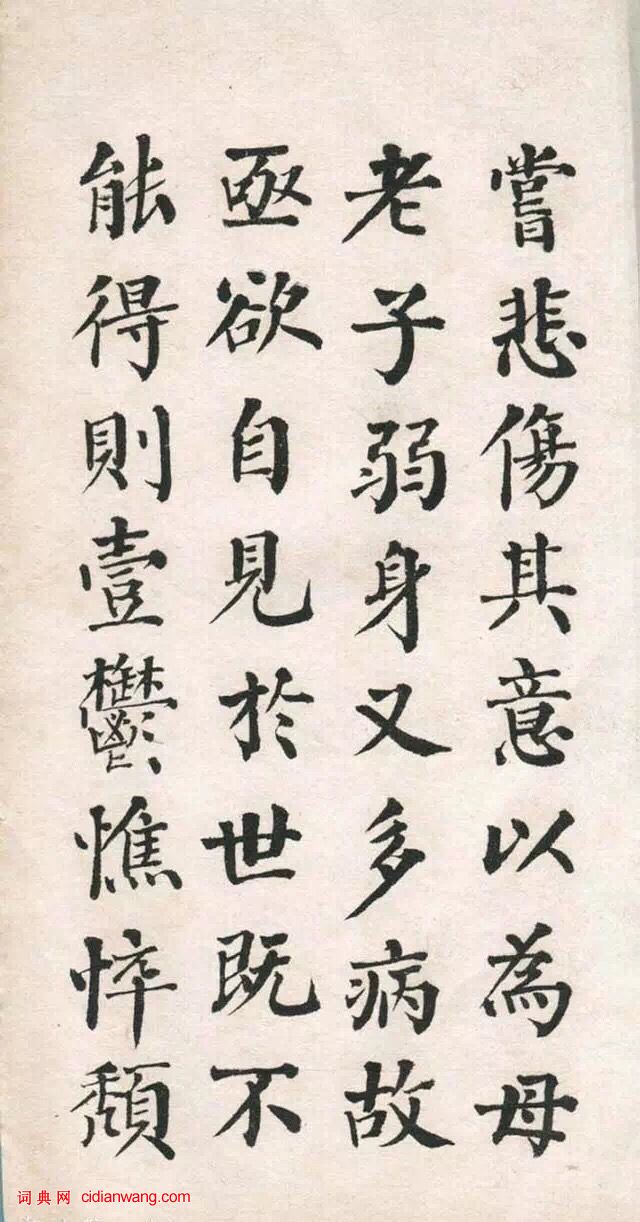 嘗悲傷其意以為母
老子弱身又多病故
亟欲自見於世既不
能得則壹鬱憔悴頹
词典网 cidianwang.com